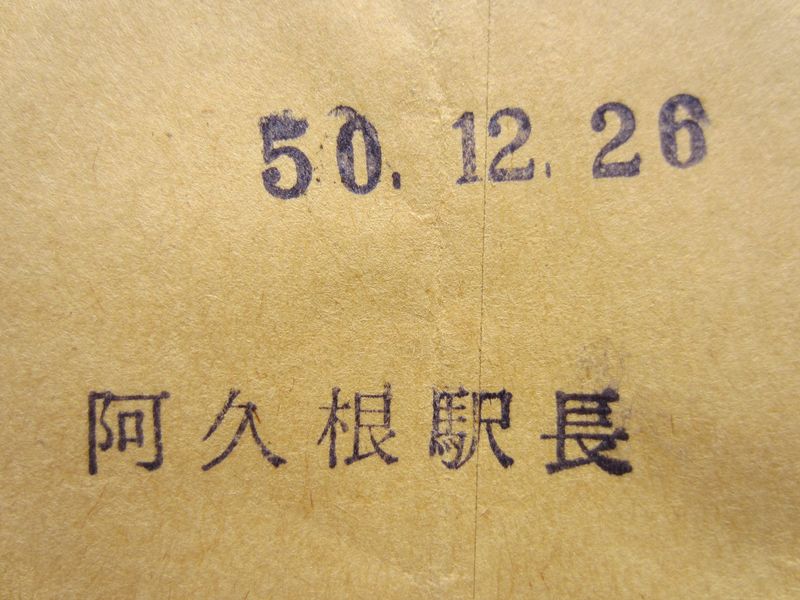 50.12.26
阿久根駅長